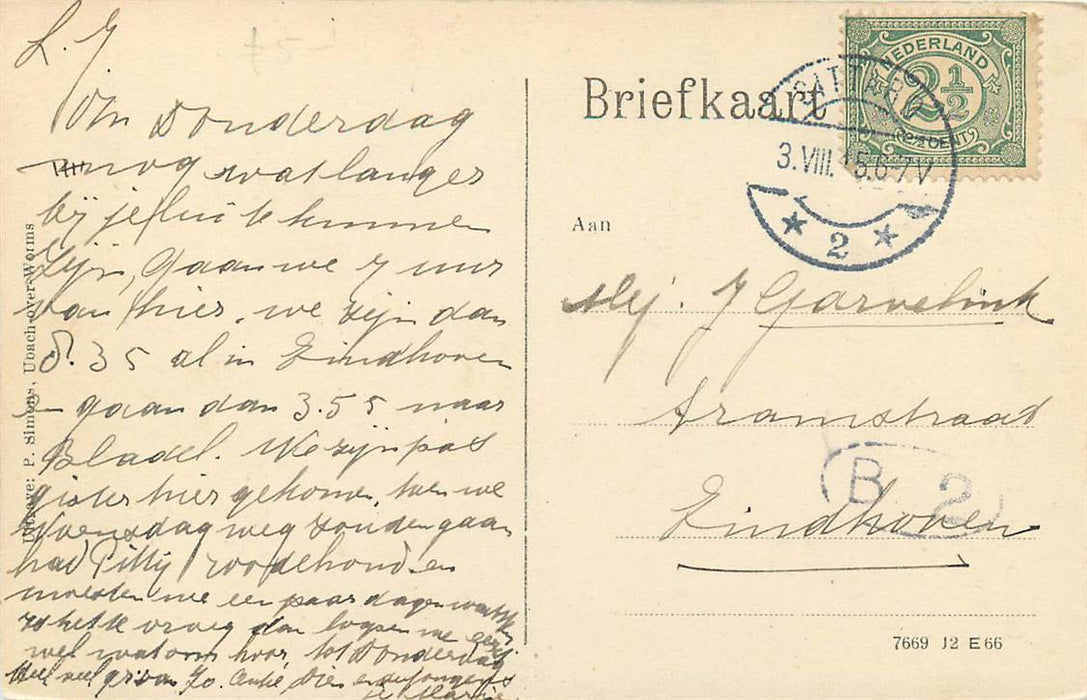 L. J
Om Donderdag
nog wat langer
bij jelui te kunnen
zijn, gaan we 7 uur
van hier, we zijn dan
8.35 al in Eindhoven
en gaan dan 3.55 naar
Bladel. We zijn pas
gister hier gekomen, toen we
Woensdag weg zouden gaan
had Pitty roodehond en
moesten we een paar dagen
is het te vroeg dan loopen we eerst
wel wat om hoor, tot Donderdag
veel van Jo. Dien en
Uitgave: P. Simons, Ubach-over-Worms
Briefkaart
NEDERLAND
2 1/2
2 1/2 CENT
SITTARD
3.VIII.15.6-7V
2
Aan
Mej. J Garvelink
Tramstraat
B 2
Eindhoven
7669 J2 E 66